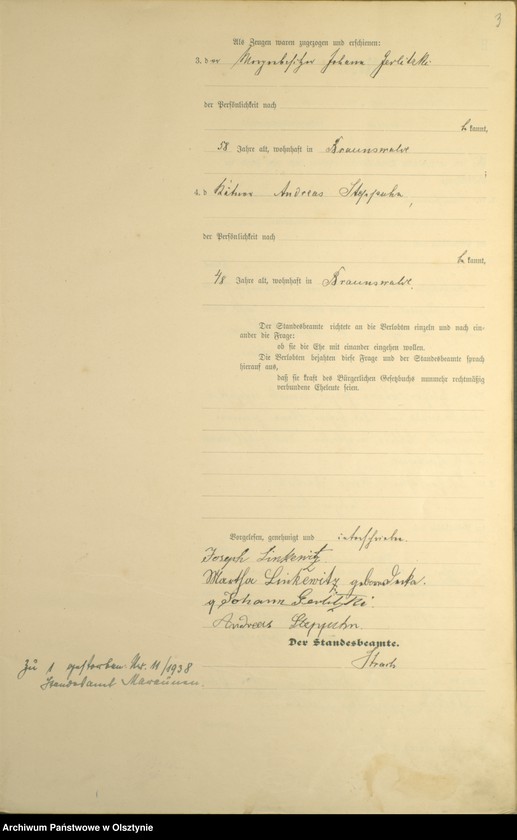 3
Als Zeugen waren zugezogen und erschienen:
3. der Johann Gerlitzki
der Persönlichkeit nach
bekannt,
58 Jahre alt, wohnhaft in Braunswalde
;
4. d Kätner Andreas Steppuhn,
der Persönlichkeit nach
bekannt,
48 Jahre alt, wohnhaft in Braunswalde.
Der Standesbeamte richtete an die Verlobten einzeln und nach ein-
ander die Frage:
ob sie die Ehe mit einander eingehen wollen.
Die Verlobten bejahten diese Frage und der Standesbeamte sprach
hierauf aus,
daß sie kraft des Bürgerlichen Gesetzbuchs nunmehr rechtmäßig
verbundene Eheleute seien.
Vorgelesen, genehmigt und unterschrieben.
Joseph Linkewitz
Martha Linkewitz geborene
Johann Gerlitzki.
Andreas Steppuhn
Der Standesbeamte.
Zu 1 gestorben Nr. 11/1938
Standesamt Maraunen.
Archiwum Państwowe w Olsztynie